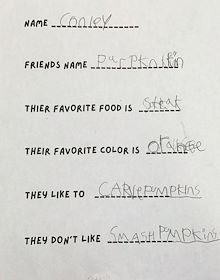 NAME Conley
FRIENDS NAME Pumpkin
THIER FAVORITE FOOD IS Steak
THEIR FAVORITE COLOR IS orange
THEY LIKE TO CARVE PUMPKINS
THEY DON'T LIKE SMASH PUMPKINS